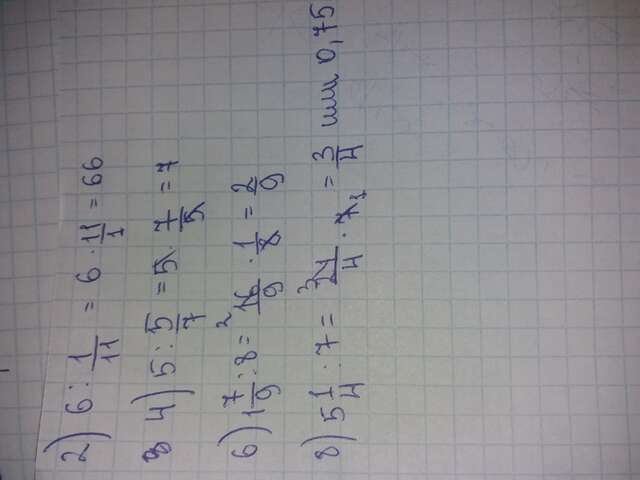 2) 6 : 1/11 = 6 · 11/1 = 66
4) 5 : 5/7 = 5 · 7/5 = 7
6) 1 7/9 : 8 = 2 16/9 · 1/8 = 2/9
8) 5 1/4 : 7 = 3 21/4 · 7 1 = 3/4 или 0,75